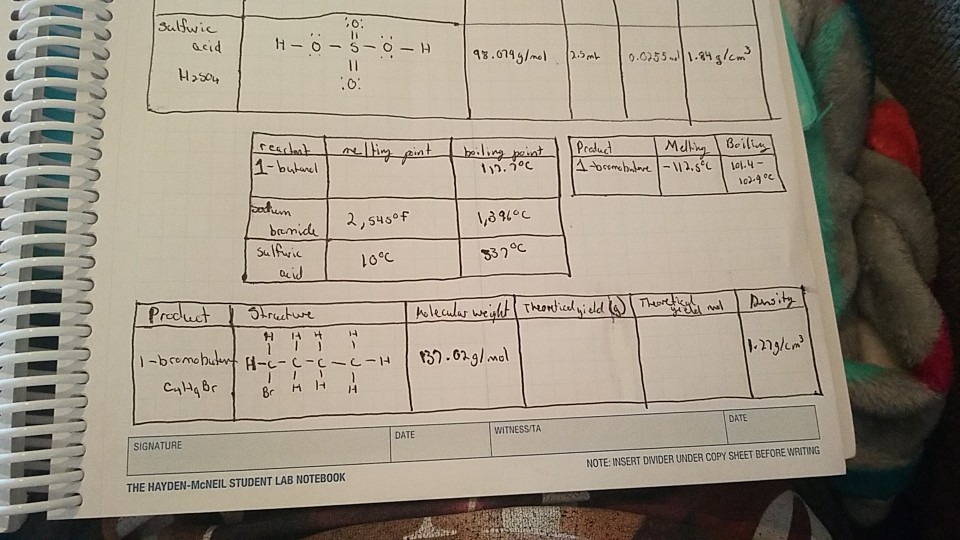 :O:
sulfuric
acid
H2SO4
H – O – S – O – H
:O:
98.079g/mol
2.5ml
0.0255
1.84 g/cm³
reactant melting point boiling point
1-butanol 117.7°C
sodium
bromide
2,545°F 1,396°C
sulfuric
acid
10°C 337°C
Product Melting Boiling
1-bromobutane -112.5°C 101.4-
102.9°C
Product Structure Molecular weight Theoretical yield (g) Theoretical
yield mol
Density
1-bromobutane
C4H9Br
H H H H
H–C – C – C – C – H
Br H H H
137.02g/mol
1.27g/cm³
SIGNATURE DATE WITNESS/TA DATE
NOTE: INSERT DIVIDER UNDER COPY SHEET BEFORE WRITING
THE HAYDEN-McNEIL STUDENT LAB NOTEBOOK